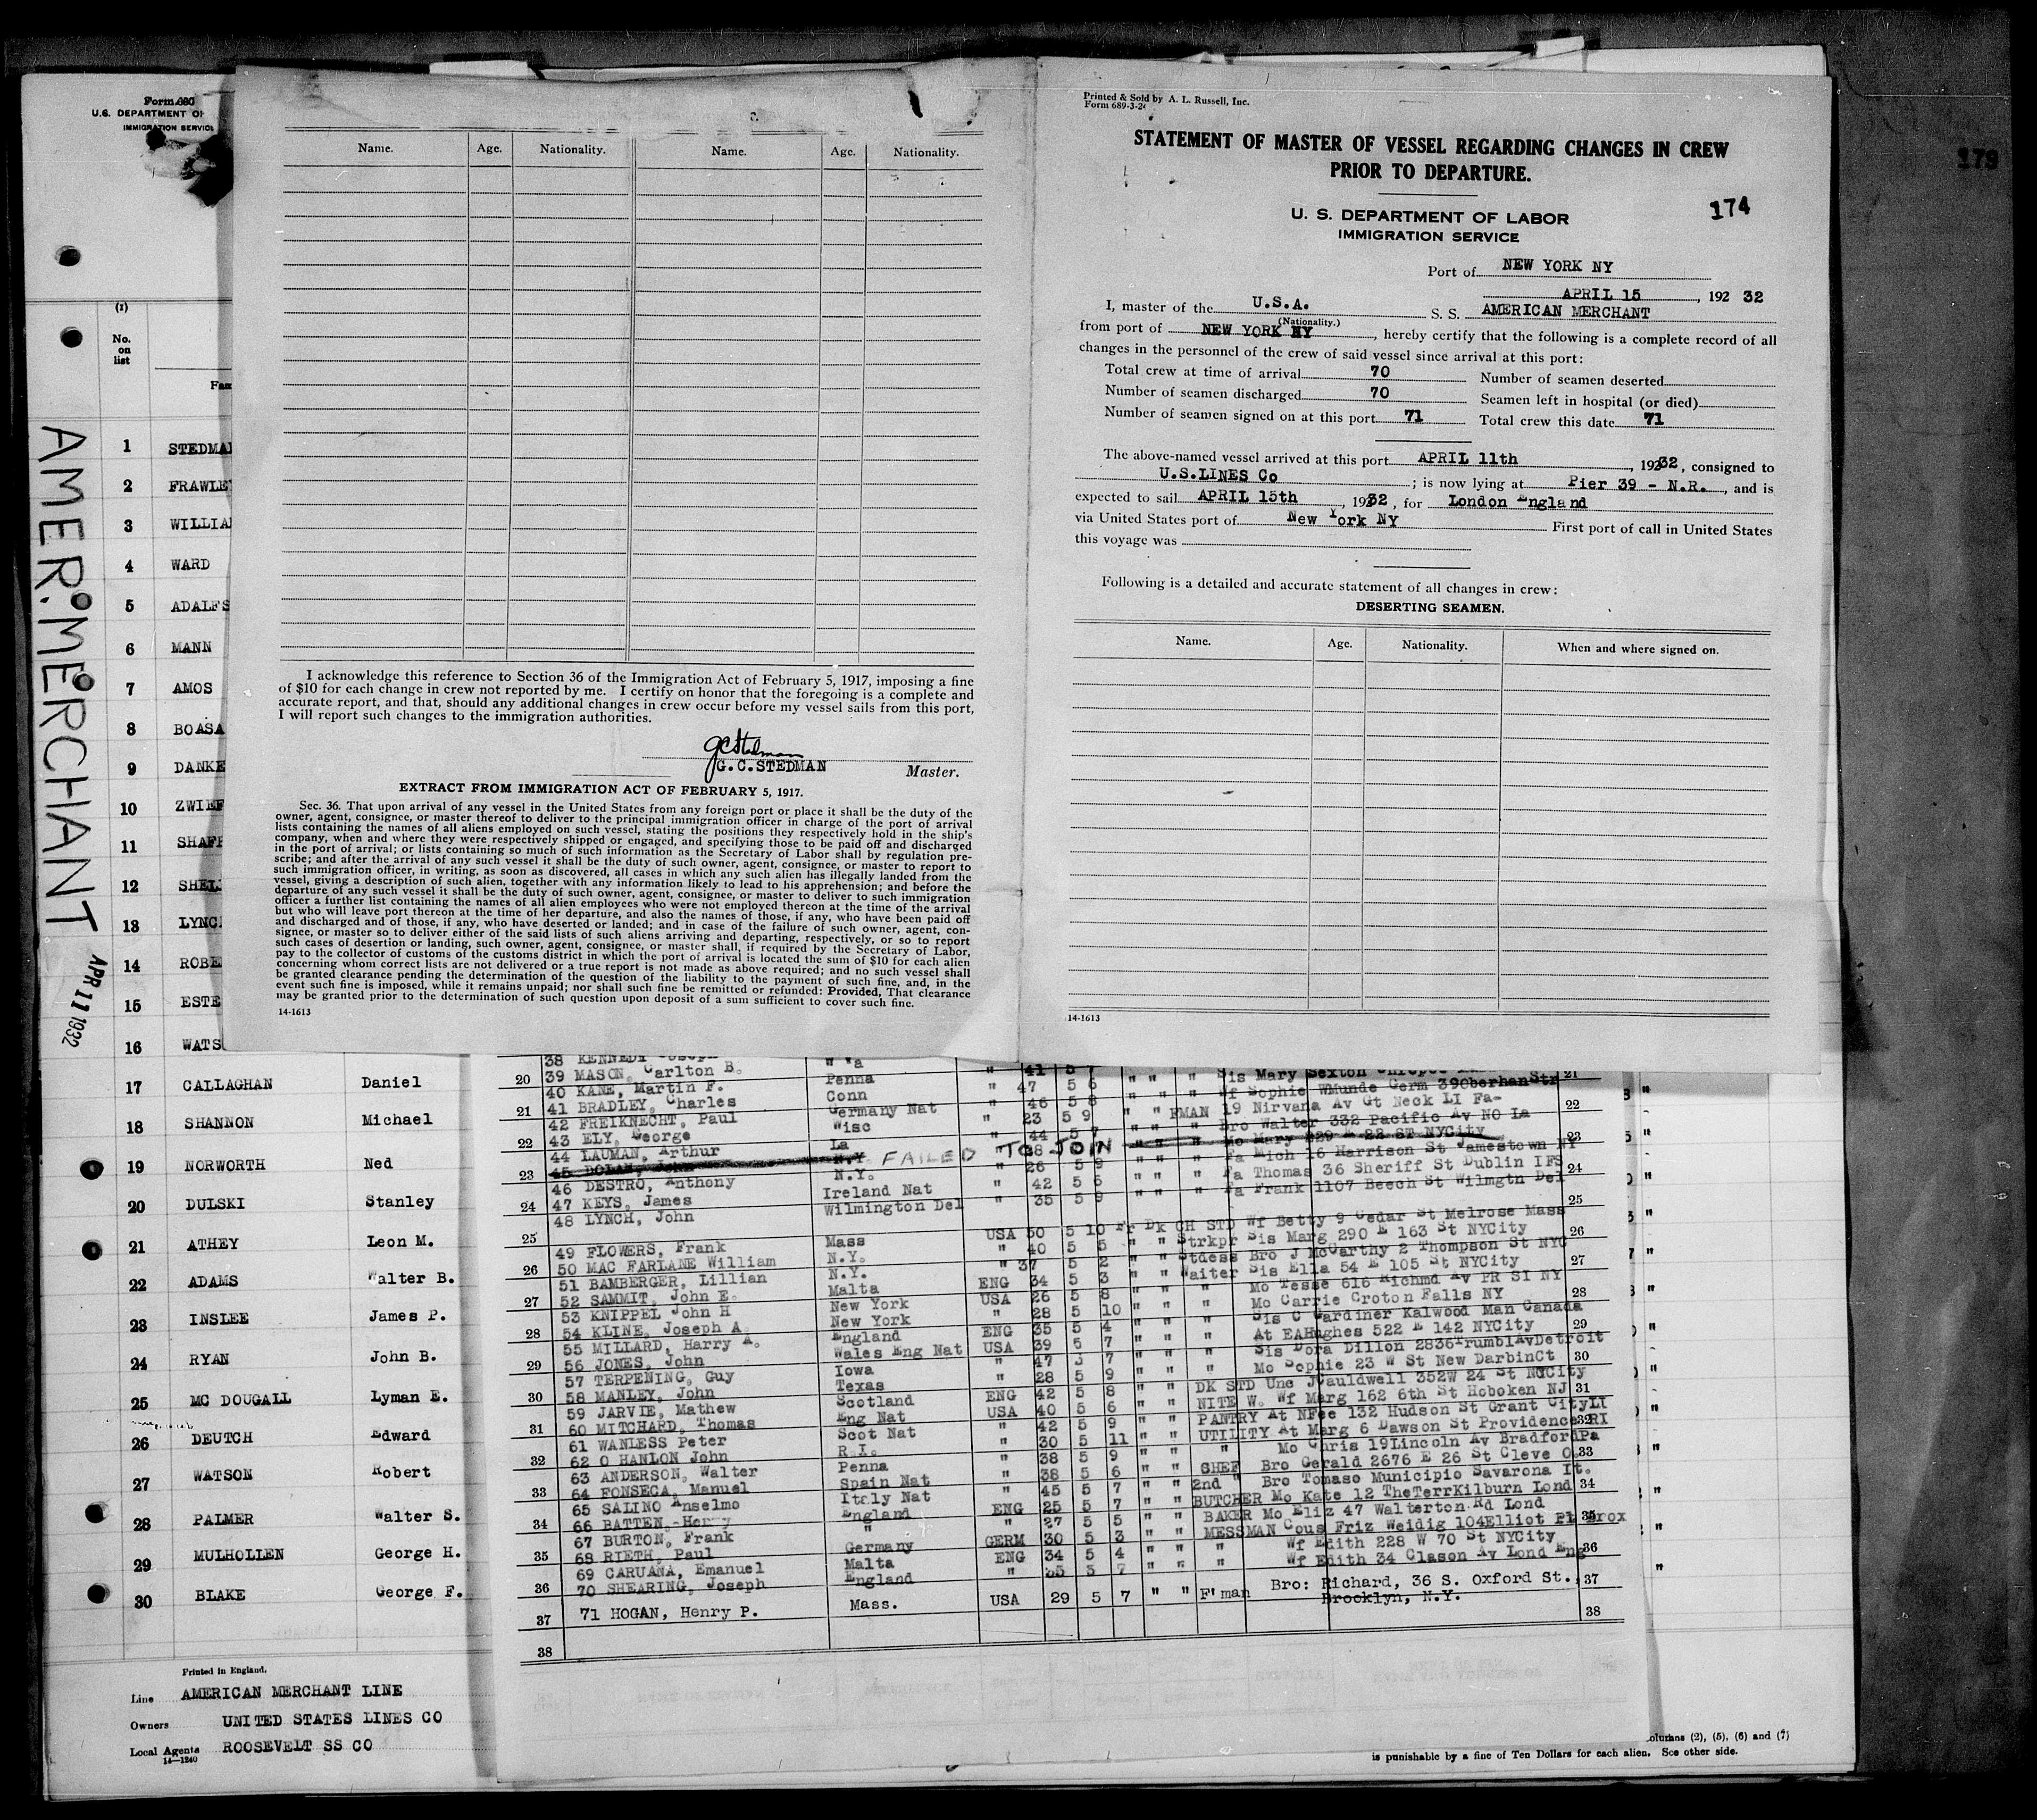 Form 680
U.S. DEPARTMENT OF
IMMIGRATION SERVICE
(1)
No.
on
list
Fam
AMER. MERCHANT
APR 11 1932
1 STEDMAN
2 FRAWLEY
3 WILLIA
4 WARD
5 ADALFS
6 MANN
7 AMOS
8 BOASA
9 DANKE
10 ZWIEF
11 SHAFF
12 SHEL
13 LYNC
14 ROBE
15 ESTE
16 WATS
17 CALLAGHAN Daniel
18 SHANNON Michael
19 NORWORTH Ned
20 DULSKI Stanley
21 ATHEY Leon M.
22 ADAMS Walter B.
23 INSLEE James P.
24 RYAN John B.
25 MC DOUGALL Lyman E.
26 DEUTCH Edward
27 WATSON Robert
28 PALMER Walter S.
29 MULHOLLEN George H.
30 BLAKE George F.
Printed in England.
Line AMERICAN MERCHANT LINE
Owners UNITED STATES LINES CO
Local Agents ROOSEVELT SS CO
14-1240
Name. Age. Nationality. Name. Age. Nationality.
I acknowledge this reference to Section 36 of the Immigration Act of February 5, 1917, imposing a fine
of $10 for each change in crew not reported by me. I certify on honor that the foregoing is a complete and
accurate report, and that, should any additional changes in crew occur before my vessel sails from this port,
I will report such changes to the immigration authorities.
GCStedman
G.C.STEDMAN Master.
EXTRACT FROM IMMIGRATION ACT OF FEBRUARY 5, 1917.
Sec. 36. That upon arrival of any vessel in the United States from any foreign port or place it shall be the duty of the
owner, agent, consignee, or master thereof to deliver to the principal immigration officer in charge of the port of arrival
lists containing the names of all aliens employed on such vessel, stating the positions they respectively hold in the ship's
company, when and where they were respectively shipped or engaged, and specifying those to be paid off and discharged
in the port of arrival; or lists containing so much of such information as the Secretary of Labor shall by regulation pre-
scribe; and after the arrival of any such vessel it shall be the duty of such owner, agent, consignee, or master to report to
such immigration officer, in writing, as soon as discovered, all cases in which any such alien has illegally landed from the
vessel, giving a description of such alien, together with any information likely to lead to his apprehension; and before the
departure of any such vessel it shall be the duty of such owner, agent, consignee, or master to deliver to such immigration
officer a further list containing the names of all alien employees who were not employed thereon at the time of the arrival
but who will leave port thereon at the time of her departure, and also the names of those, if any, who have been paid off
and discharged and of those, if any, who have deserted or landed; and in case of the failure of such owner, agent, con-
signee, or master so to deliver either of the said lists of such aliens arriving and departing, respectively, or so to report
such cases of desertion or landing, such owner, agent, consignee, or master shall, if required by the Secretary of Labor,
pay to the collector of customs of the customs district in which the port of arrival is located the sum of $10 for each alien
concerning whom correct lists are not delivered or a true report is not made as above required; and no such vessel shall
be granted clearance pending the determination of the question of the liability to the payment of such fine, and, in the
event such fine is imposed, while it remains unpaid; nor shall such fine be remitted or refunded: Provided, That clearance
may be granted prior to the determination of such question upon deposit of a sum sufficient to cover such fine.
14-1613
Printed & Sold by A. L. Russell, Inc.
Form 689-3-24
STATEMENT OF MASTER OF VESSEL REGARDING CHANGES IN CREW
PRIOR TO DEPARTURE.
174
179
U. S. DEPARTMENT OF LABOR
IMMIGRATION SERVICE
Port of NEW YORK NY
APRIL 15, 192 32
I, master of the U.S.A. S. S. AMERICAN MERCHANT
(Nationality.)
from port of NEW YORK NY, hereby certify that the following is a complete record of all
changes in the personnel of the crew of said vessel since arrival at this port:
Total crew at time of arrival 70 Number of seamen deserted
Number of seamen discharged 70 Seamen left in hospital (or died)
Number of seamen signed on at this port 71 Total crew this date 71
The above-named vessel arrived at this port APRIL 11th, 19232, consigned to
U.S.LINES Co; is now lying at Pier 39 - N.R., and is
expected to sail APRIL 15th, 19232, for London England
via United States port of New York NY First port of call in United States
this voyage was
Following is a detailed and accurate statement of all changes in crew:
DESERTING SEAMEN.
Name. Age. Nationality. When and where signed on.
14-1613
38 KENNEDY Joseph
20 39 MASON, Carlton B. " Va " 41 5 7 " " " Sis Mary Sexton 21
40 KANE, Martin F. Penna " 47 5 6 " " " Wf Sophie WMunde Germ 39OberhanStr
21 41 BRADLEY, Charles Conn " 46 5 8 19 Nirvana Av Gt Neck LI Fa- 22
42 FREIKNECHT, Paul Germany Nat " 23 5 9 " " FMAN Bro Walter 332 Pacific Av NO La
22 43 ELY, George Wisc " 44 5 7 " " " Mo Mary 229 E 22 ST NYCity 23
44 LAUMAN, Arthur La " 28 Fa Mich 16 Harrison St Jamestown NY
23 45 DOLAN, John N.Y. FAILED TO JOIN
46 DESTRO, Anthony N.Y. " 26 5 9 " " " Fa Thomas 36 Sheriff St Dublin IFS 24
24 47 KEYS, James Ireland Nat " 42 5 6 " " " Fa Frank 1107 Beech St Wilmgtn Del
48 LYNCH, John Wilmington Del " 35 5 9 25
25 49 FLOWERS, Frank Mass USA 50 5 10 Fr Dk CH STD Wf Betty 9 Cedar St Melrose Mass
26 50 MAC FARLANE William N.Y. " 40 5 5 " " Strkpr Sis Marg 290 E 163 St NYCity 26
51 BAMBERGER, Lillian N.Y. " 37 5 2 " " Stdess Bro J McCarthy 2 Thompson St NYC
27 52 SAMMIT, John E. Malta ENG 34 5 3 " " Waiter Sis Ella 54 E 105 St NYCity 27
53 KNIPPEL John H New York USA 26 5 8 " " " Mo Tesse 616 Richmd Av PR SI NY
28 54 KLINE, Joseph A. New York " 28 5 10 " " " Mo Carrie Croton Falls NY 28
55 MILLARD, Harry A. England ENG 35 5 4 " " " Sis C Gardiner Kalwood Man Canada
29 56 JONES, John Wales Eng Nat USA 39 5 7 " " " At EAHughes 522 E 142 NYCity 29
57 TERPENING, Guy Iowa " 47 5 7 " " " Sis Dora Dillon 2836TrumblAvDetroit
30 58 MANLEY, John Texas " 28 5 9 " " " Mo Sophie 23 W St New DarbinCt 30
59 JARVIE, Mathew Scotland ENG 42 5 8 " " DK STD Unc JCauldwell 352W 24 St NYCity
31 60 MITCHARD, Thomas Eng Nat USA 40 5 6 " " NITE W. Wf Marg 162 6th St Hoboken NJ 31
61 WANLESS Peter Scot Nat " 42 5 9 " " PANTRY At NFee 132 Hudson St Grant CityLI
32 62 O HANLON John R.I. " 30 5 11 " " UTILITY At Marg 6 Dawson St Providence RI 32
63 ANDERSON, Walter Penna " 38 5 9 " " " Mo Chris 19Lincoln Av BradfordPa
33 64 FONSECA, Manuel Spain Nat " 38 5 6 " " CHEF Bro Gerald 2676 E 26 St Cleve O. 33
65 SALINO Anselmo Italy Nat " 45 5 7 " " 2nd " Bro Tomaso Municipio Savarona It.
34 66 BATTEN, Henry England ENG 25 5 7 " " BUTCHER Mo Kate 12 TheTerrKilburn Lond 34
67 BURTON, Frank " " 27 5 5 " " BAKER Mo Eliz 47 Walterton Rd Lond
35 68 RIETH, Paul Germany GERM 30 5 3 " " MESSMAN Cous Friz Weidig 104Elliot Pl Brox 35
69 CARUANA, Emanuel Malta ENG 34 5 4 " " " Wf Edith 228 W 70 St NYCity
36 70 SHEARING, Joseph England " 35 5 7 " " " Wf Edith 34 Clason Av Lond Eng 36
37 71 HOGAN, Henry P. Mass. USA 29 5 7 " " F'man Bro: Richard, 36 S. Oxford St., 37
Brooklyn, N.Y.
38 38
olumns (2), (5), (6) and (7)
is punishable by a fine of Ten Dollars for each alien. See other side.